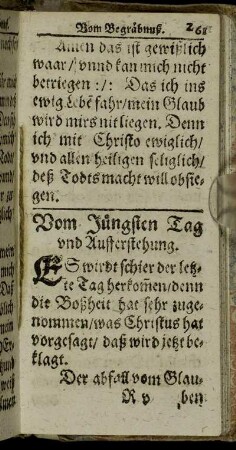 Vom Begräbnuß. 261
Amen das ist gewißlich
waar/ vnnd kan mich nicht
betriegen :/: Das ich ins
ewig Lebē fahr/mein Glaub
wird mirs nit liegen. Denn
ich mit Christo ewiglich/
vnd allen heiligen seliglich/
deß Todts macht will obsie-
gen.
Vom Jüngsten Tag
vnd Aufferstehung.
ES wirdt schier der letz-
te Tag herkom̄en/denn
die Boßheit hat sehr zuge-
nommen/was Christus hat
vorgesagt/ daß wird jetzt be-
klagt.
Der abfall vom Glau-
R v ben